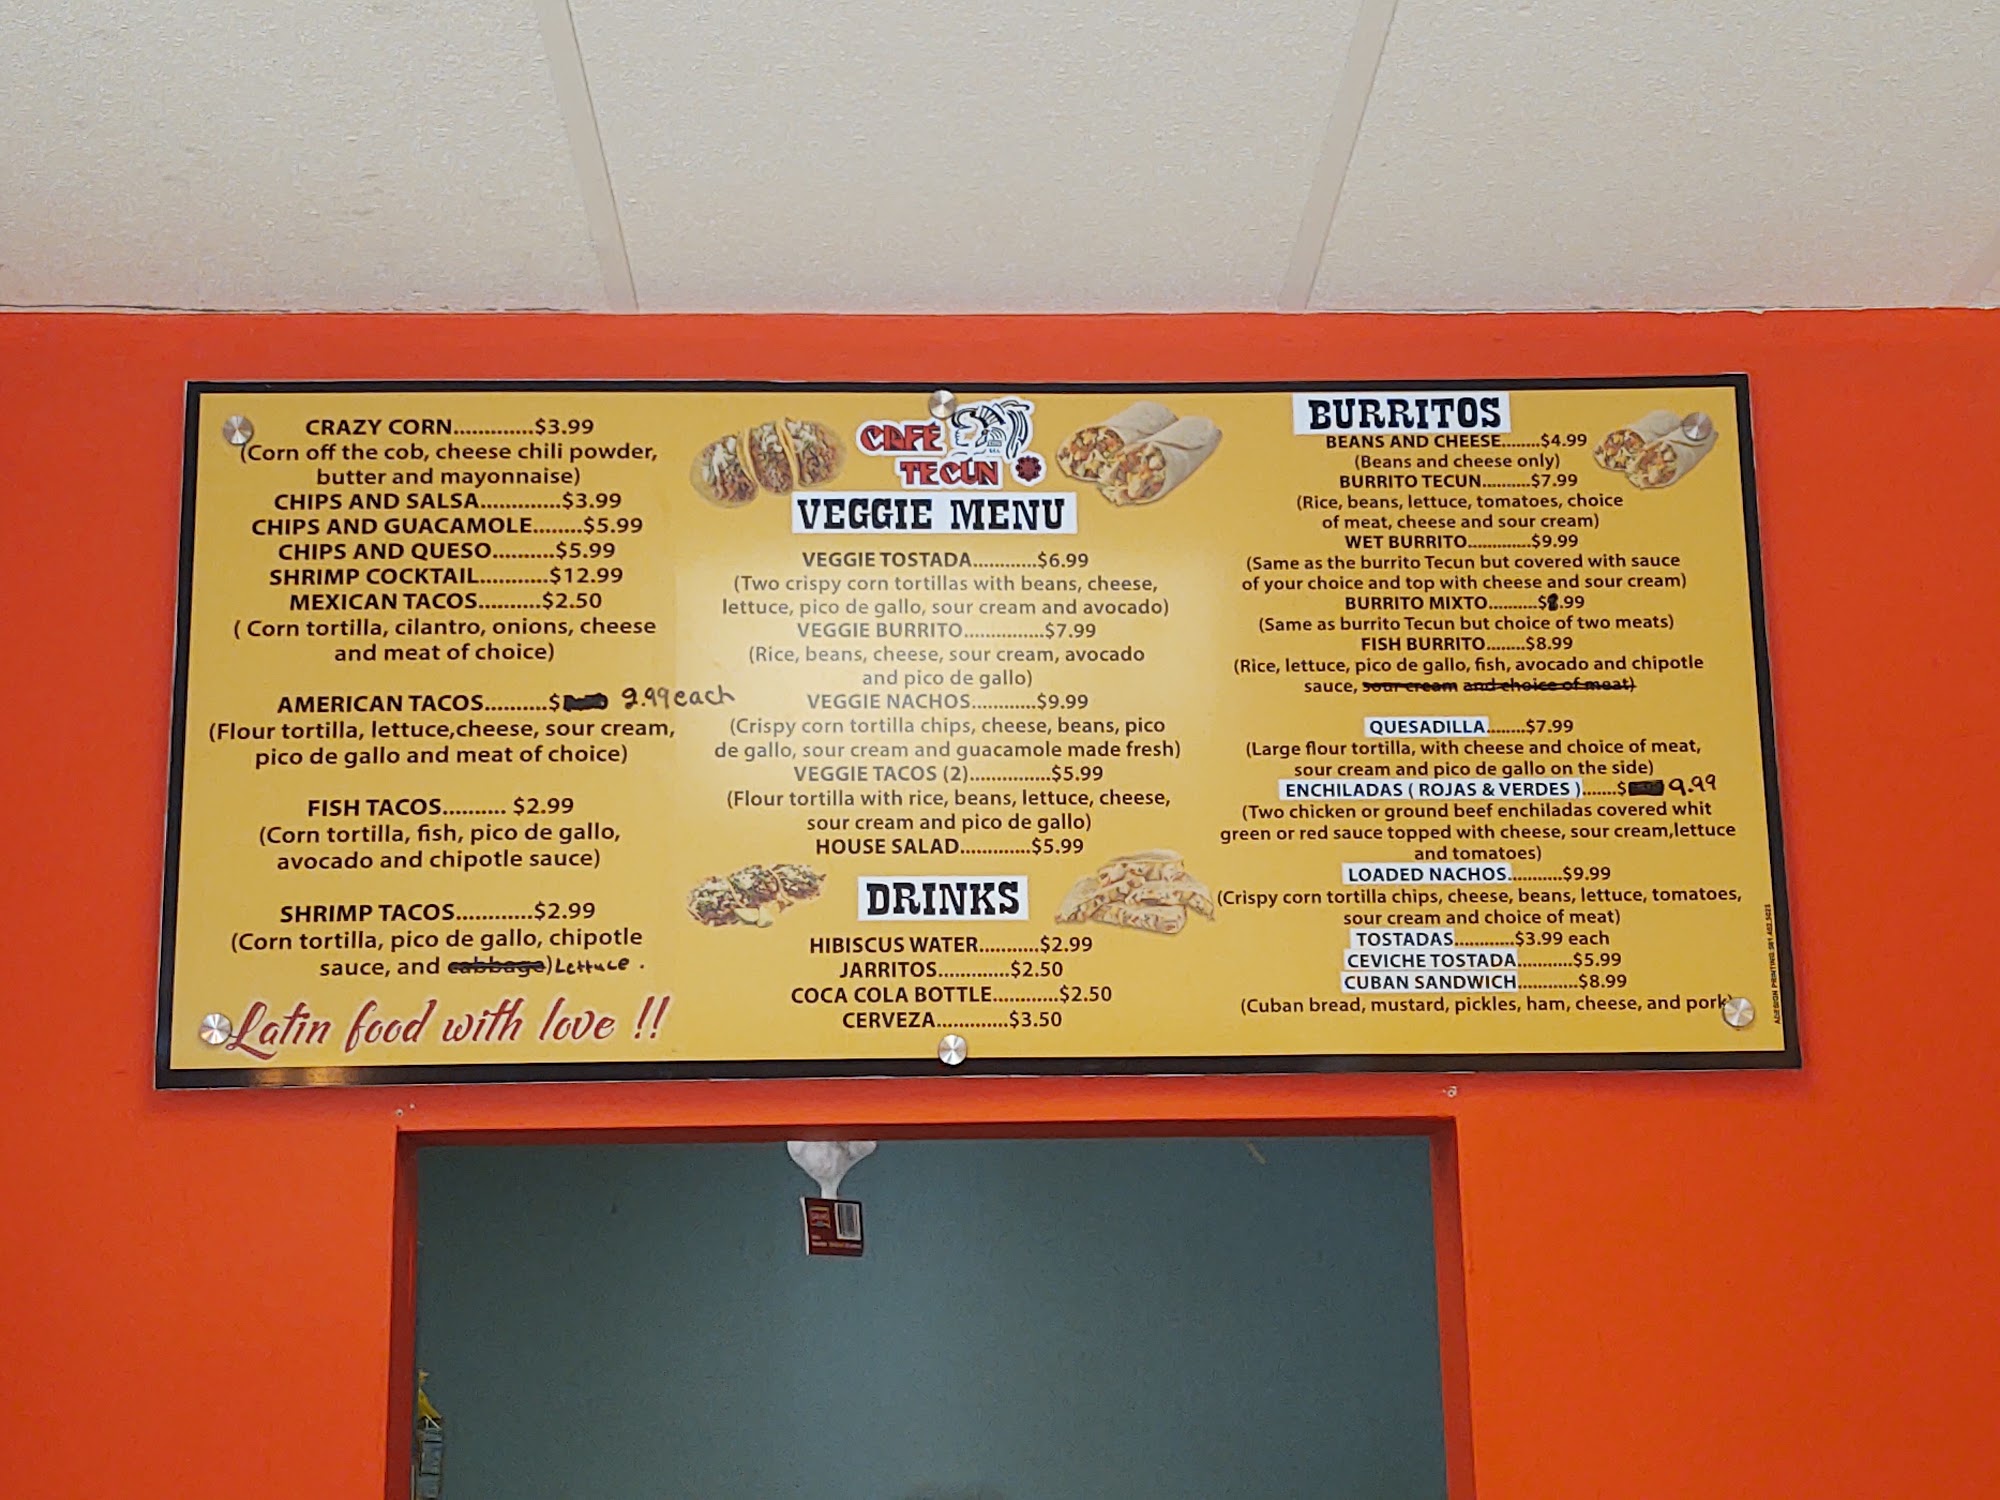 CRAZY CORN.............$3.99
(Corn off the cob, cheese chili powder,
butter and mayonnaise)
CHIPS AND SALSA.............$3.99
CHIPS AND GUACAMOLE........$5.99
CHIPS AND QUESO..........$5.99
SHRIMP COCKTAIL...........$12.99
MEXICAN TACOS..........$2.50
( Corn tortilla, cilantro, onions, cheese
and meat of choice)
AMERICAN TACOS..........$ 2.99 each
(Flour tortilla, lettuce,cheese, sour cream,
pico de gallo and meat of choice)
FISH TACOS.......... $2.99
(Corn tortilla, fish, pico de gallo,
avocado and chipotle sauce)
SHRIMP TACOS............$2.99
(Corn tortilla, pico de gallo, chipotle
sauce, and cabbage) Lettuce.
Latin food with love !!
CAFÉ
TECÚN
VEGGIE MENU
VEGGIE TOSTADA............$6.99
(Two crispy corn tortillas with beans, cheese,
lettuce, pico de gallo, sour cream and avocado)
VEGGIE BURRITO...............$7.99
(Rice, beans, cheese, sour cream, avocado
and pico de gallo)
VEGGIE NACHOS............$9.99
(Crispy corn tortilla chips, cheese, beans, pico
de gallo, sour cream and guacamole made fresh)
VEGGIE TACOS (2)...............$5.99
(Flour tortilla with rice, beans, lettuce, cheese,
sour cream and pico de gallo)
HOUSE SALAD.............$5.99
DRINKS
HIBISCUS WATER...........$2.99
JARRITOS.............$2.50
COCA COLA BOTTLE............$2.50
CERVEZA.............$3.50
BURRITOS
BEANS AND CHEESE........$4.99
(Beans and cheese only)
BURRITO TECUN..........$7.99
(Rice, beans, lettuce, tomatoes, choice
of meat, cheese and sour cream)
WET BURRITO.............$9.99
(Same as the burrito Tecun but covered with sauce
of your choice and top with cheese and sour cream)
BURRITO MIXTO..........$8.99
(Same as burrito Tecun but choice of two meats)
FISH BURRITO........$8.99
(Rice, lettuce, pico de gallo, fish, avocado and chipotle
sauce, sour cream and choice of meat)
QUESADILLA........$7.99
(Large flour tortilla, with cheese and choice of meat,
sour cream and pico de gallo on the side)
ENCHILADAS ( ROJAS & VERDES ).......$ 9.99
(Two chicken or ground beef enchiladas covered whit
green or red sauce topped with cheese, sour cream,lettuce
and tomatoes)
LOADED NACHOS...........$9.99
(Crispy corn tortilla chips, cheese, beans, lettuce, tomatoes,
sour cream and choice of meat)
TOSTADAS............$3.99 each
CEVICHE TOSTADA...........$5.99
CUBAN SANDWICH............$8.99
(Cuban bread, mustard, pickles, ham, cheese, and pork)